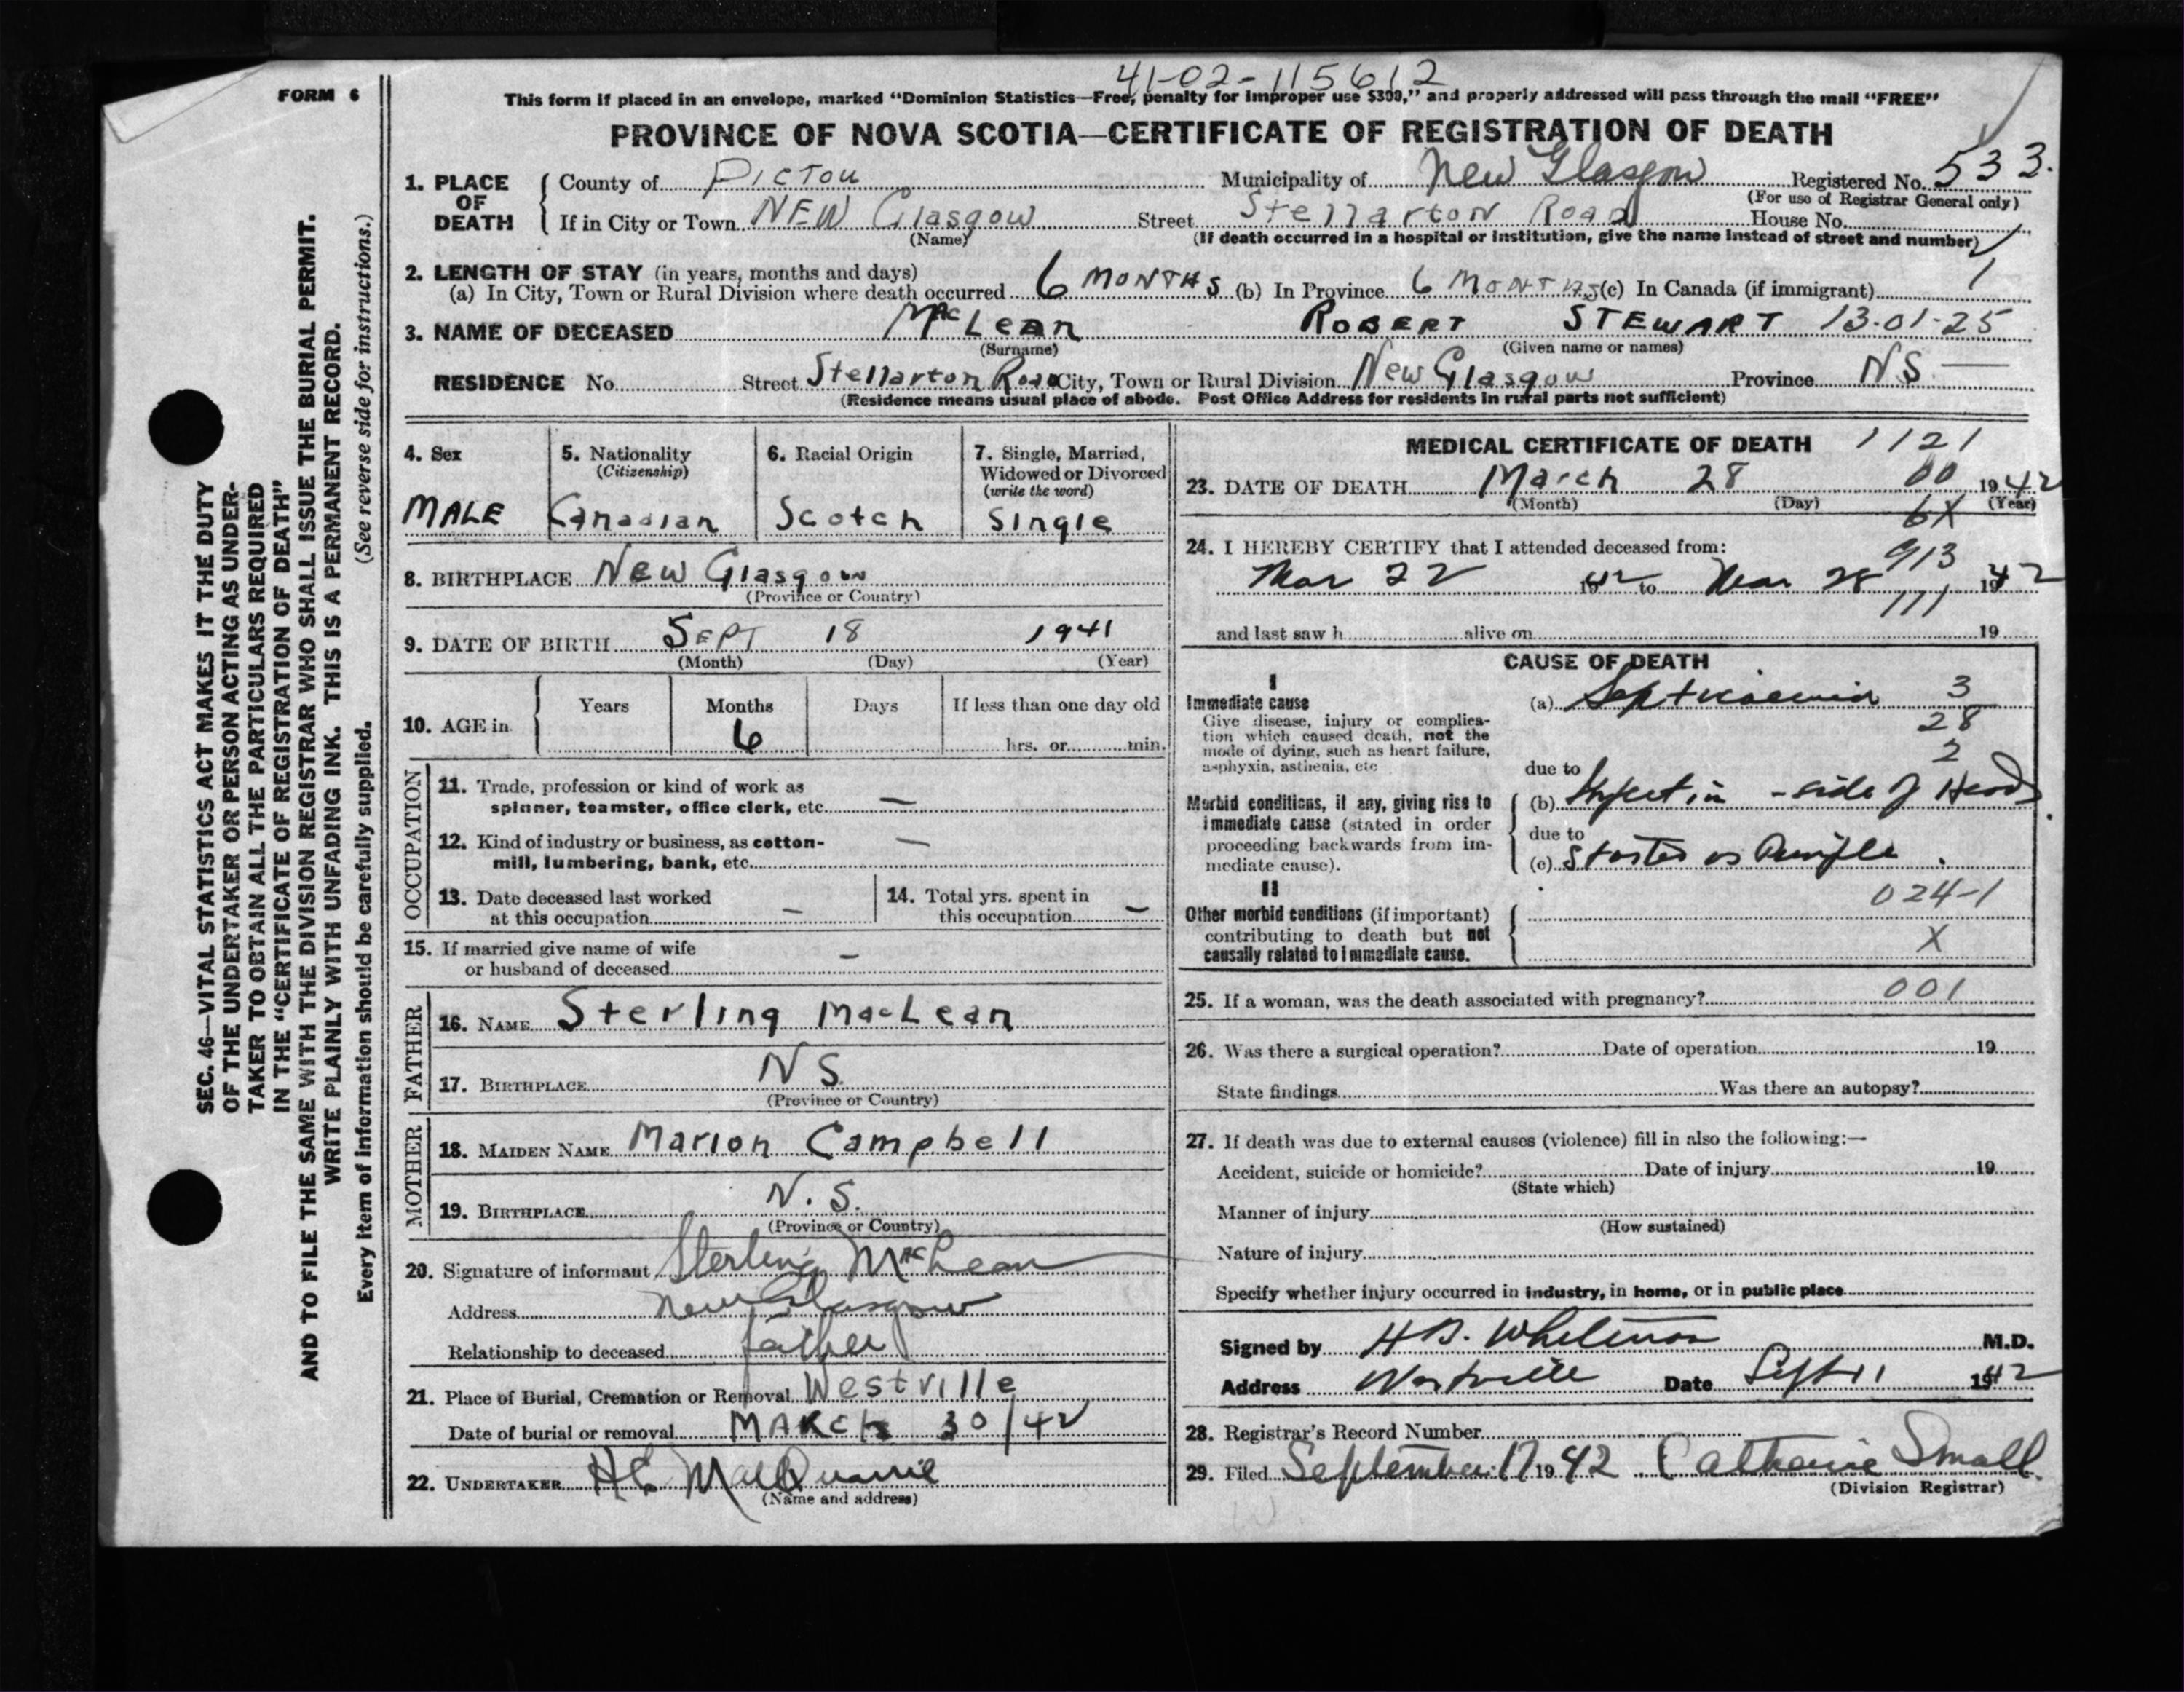 41-02-115612
FORM 6
This form if placed in an envelope, marked "Dominion Statistics—Free, penalty for improper use $300," and properly addressed will pass through the mail "FREE"
PROVINCE OF NOVA SCOTIA—CERTIFICATE OF REGISTRATION OF DEATH
1. PLACE OF DEATH
County of Pictou Municipality of New Glasgow Registered No. 533.
(For use of Registrar General only)
If in City or Town NEW Glasgow Street Stellarton Road House No.
(Name) (If death occurred in a hospital or institution, give the name instead of street and number)
2. LENGTH OF STAY (in years, months and days)
(a) In City, Town or Rural Division where death occurred 6 MONTHS (b) In Province 6 MONTHS (c) In Canada (if immigrant) 1
3. NAME OF DECEASED MacLean ROBERT STEWART 13-01-25
(Surname) (Given name or names)
RESIDENCE No. Street Stellarton Road City, Town or Rural Division New Glasgow Province NS —
(Residence means usual place of abode. Post Office Address for residents in rural parts not sufficient)
4. Sex
MALE
5. Nationality
(Citizenship)
Canadian
6. Racial Origin
Scotch
7. Single, Married, Widowed or Divorced
(write the word)
Single
8. BIRTHPLACE New Glasgow
(Province or Country)
9. DATE OF BIRTH SEPT 18 1941
(Month) (Day) (Year)
10. AGE in Years Months Days If less than one day old
6 hrs. or min.
OCCUPATION
11. Trade, profession or kind of work as
spinner, teamster, office clerk, etc. —
12. Kind of industry or business, as cotton-
mill, lumbering, bank, etc. —
13. Date deceased last worked
at this occupation —
14. Total yrs. spent in
this occupation —
15. If married give name of wife
or husband of deceased —
FATHER
16. NAME Sterling MacLean
17. BIRTHPLACE NS.
(Province or Country)
MOTHER
18. MAIDEN NAME Marion Campbell
19. BIRTHPLACE N.S.
(Province or Country)
20. Signature of informant Sterling MacLean
Address New Glasgow
Relationship to deceased father
21. Place of Burial, Cremation or Removal Westville
Date of burial or removal MARCH 30/42
22. UNDERTAKER H E MacQuarrie
(Name and address)
MEDICAL CERTIFICATE OF DEATH 1121
23. DATE OF DEATH March 28 00 1942
(Month) (Day) (Year)
6X
24. I HEREBY CERTIFY that I attended deceased from: 913
Mar 22 1942 to Mar 28 1942
111
and last saw h alive on 19
CAUSE OF DEATH
I
Immediate cause
Give disease, injury or complica-
tion which caused death, not the
mode of dying, such as heart failure,
asphyxia, asthenia, etc
(a) Septicaemia 3
28
2
due to
Morbid conditions, if any, giving rise to
immediate cause (stated in order
proceeding backwards from im-
mediate cause).
(b) Infection - side of Head
due to
(c) Started as Pimple.
II
Other morbid conditions (if important)
contributing to death but not
causally related to immediate cause.
024-1
X
25. If a woman, was the death associated with pregnancy? 001
26. Was there a surgical operation? Date of operation 19
State findings Was there an autopsy?
27. If death was due to external causes (violence) fill in also the following:—
Accident, suicide or homicide? Date of injury 19
(State which)
Manner of injury
(How sustained)
Nature of injury
Specify whether injury occurred in industry, in home, or in public place
Signed by H B. Whitman M.D.
Address Westville Date Sept 11 1942
28. Registrar's Record Number
29. Filed September 17 1942 Catharine Small
(Division Registrar)
SEC. 46—VITAL STATISTICS ACT MAKES IT THE DUTY
OF THE UNDERTAKER OR PERSON ACTING AS UNDER-
TAKER TO OBTAIN ALL THE PARTICULARS REQUIRED
IN THE "CERTIFICATE OF REGISTRATION OF DEATH"
AND TO FILE THE SAME WITH THE DIVISION REGISTRAR WHO SHALL ISSUE THE BURIAL PERMIT.
WRITE PLAINLY WITH UNFADING INK. THIS IS A PERMANENT RECORD.
Every item of information should be carefully supplied. (See reverse side for instructions.)